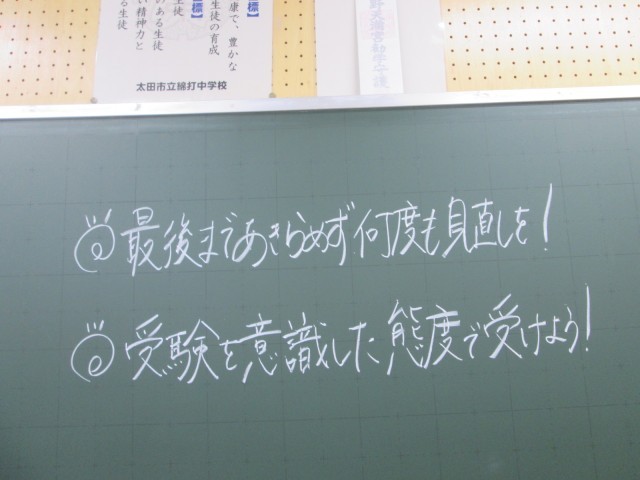 標】
康で、豊かな
生徒の育成
標】
生徒
のある生徒
い精神力と
る生徒
太田市立綿打中学校
最後まであきらめず何度も見直しを!
受験を意識した態度で受けよう!